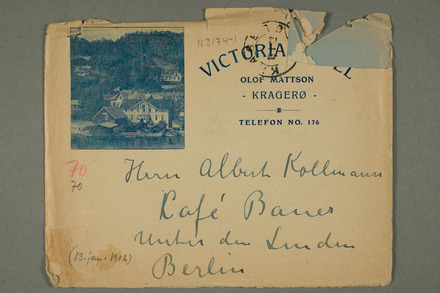 N 3174-1
VICTORIA
OLOF MATTSON
- KRAGERØ -
TELEFON NO. 176
70
70
Herrn Albert Kollmann
Kafé Bauer
Unter den Linden
Berlin
(13. jan. 1912)